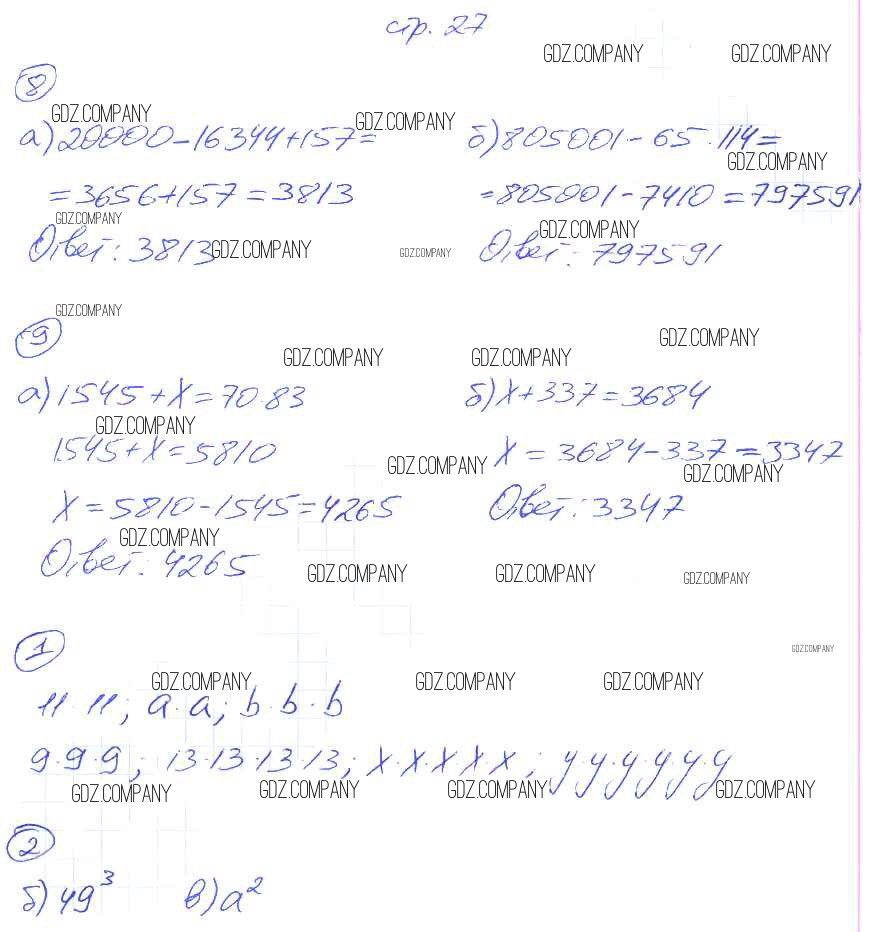 стр. 27
GDZ.COMPANY GDZ.COMPANY
8
GDZ.COMPANY GDZ.COMPANY
а) 20000-16344+157= б) 805001-65·114=
GDZ.COMPANY
=3656+157=3813 =805001-7410=797591
GDZ.COMPANY GDZ.COMPANY
Ответ: 3813 GDZ.COMPANY GDZ.COMPANY Ответ: 797591
GDZ.COMPANY
9
GDZ.COMPANY GDZ.COMPANY GDZ.COMPANY
а) 1545+x=70·83 б) x+337=3684
GDZ.COMPANY
1545+x=5810 x=3684-337=3347
GDZ.COMPANY GDZ.COMPANY
x=5810-1545=4265 Ответ: 3347
GDZ.COMPANY
Ответ: 4265 GDZ.COMPANY GDZ.COMPANY GDZ.COMPANY
1
GDZ.COMPANY
GDZ.COMPANY GDZ.COMPANY GDZ.COMPANY
11·11; a·a; b·b·b
9·9·9; 13·13·13·13; x·x·x·x·x; y·y·y·y·y·y
GDZ.COMPANY GDZ.COMPANY GDZ.COMPANY GDZ.COMPANY
2
б) 49³ в) a²